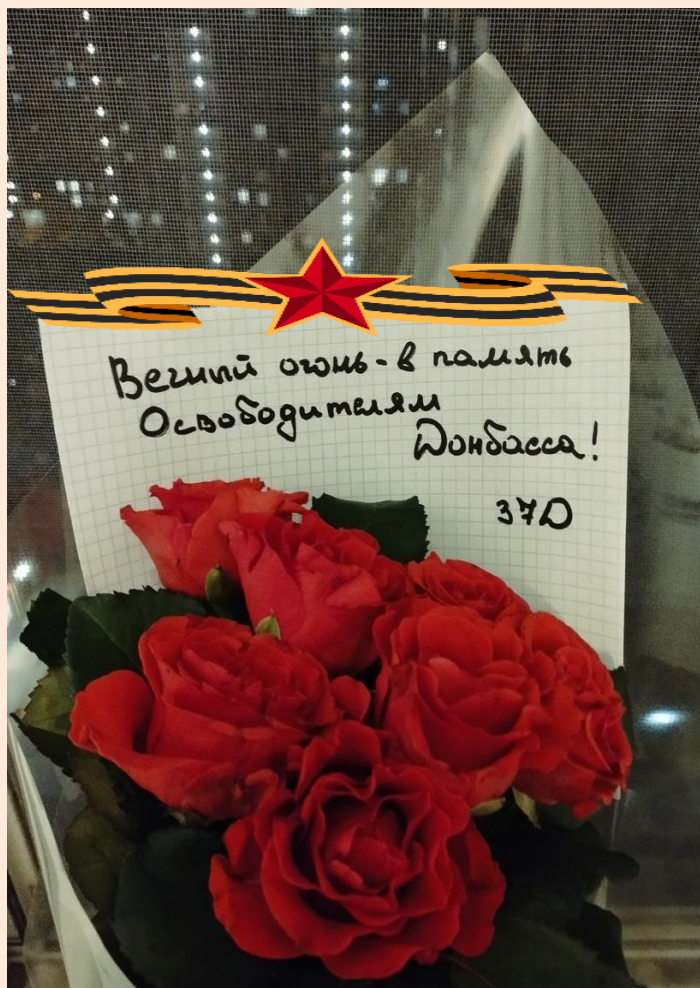 Вечный огонь - в память
Освободителям
Донбасса!
37D